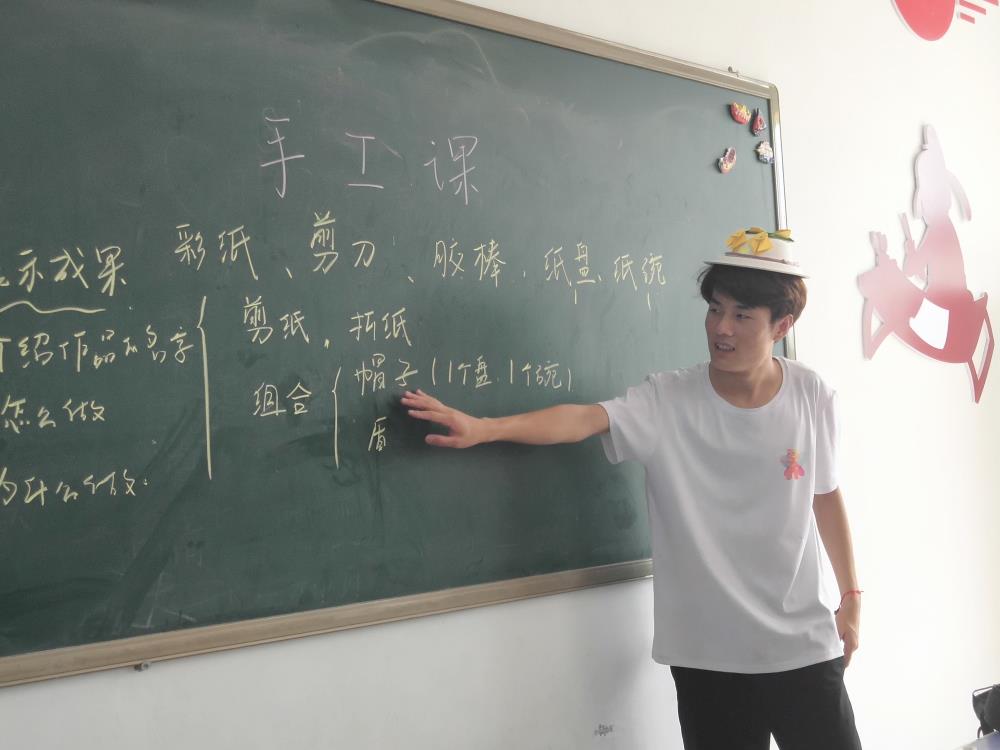 手工课
彩纸、剪刀、胶棒、纸盘、纸碗
示成果
剪纸，折纸
介绍作品的名字
组合
帽子(1个盘、1个碗)
盾
怎么做
为什么做.